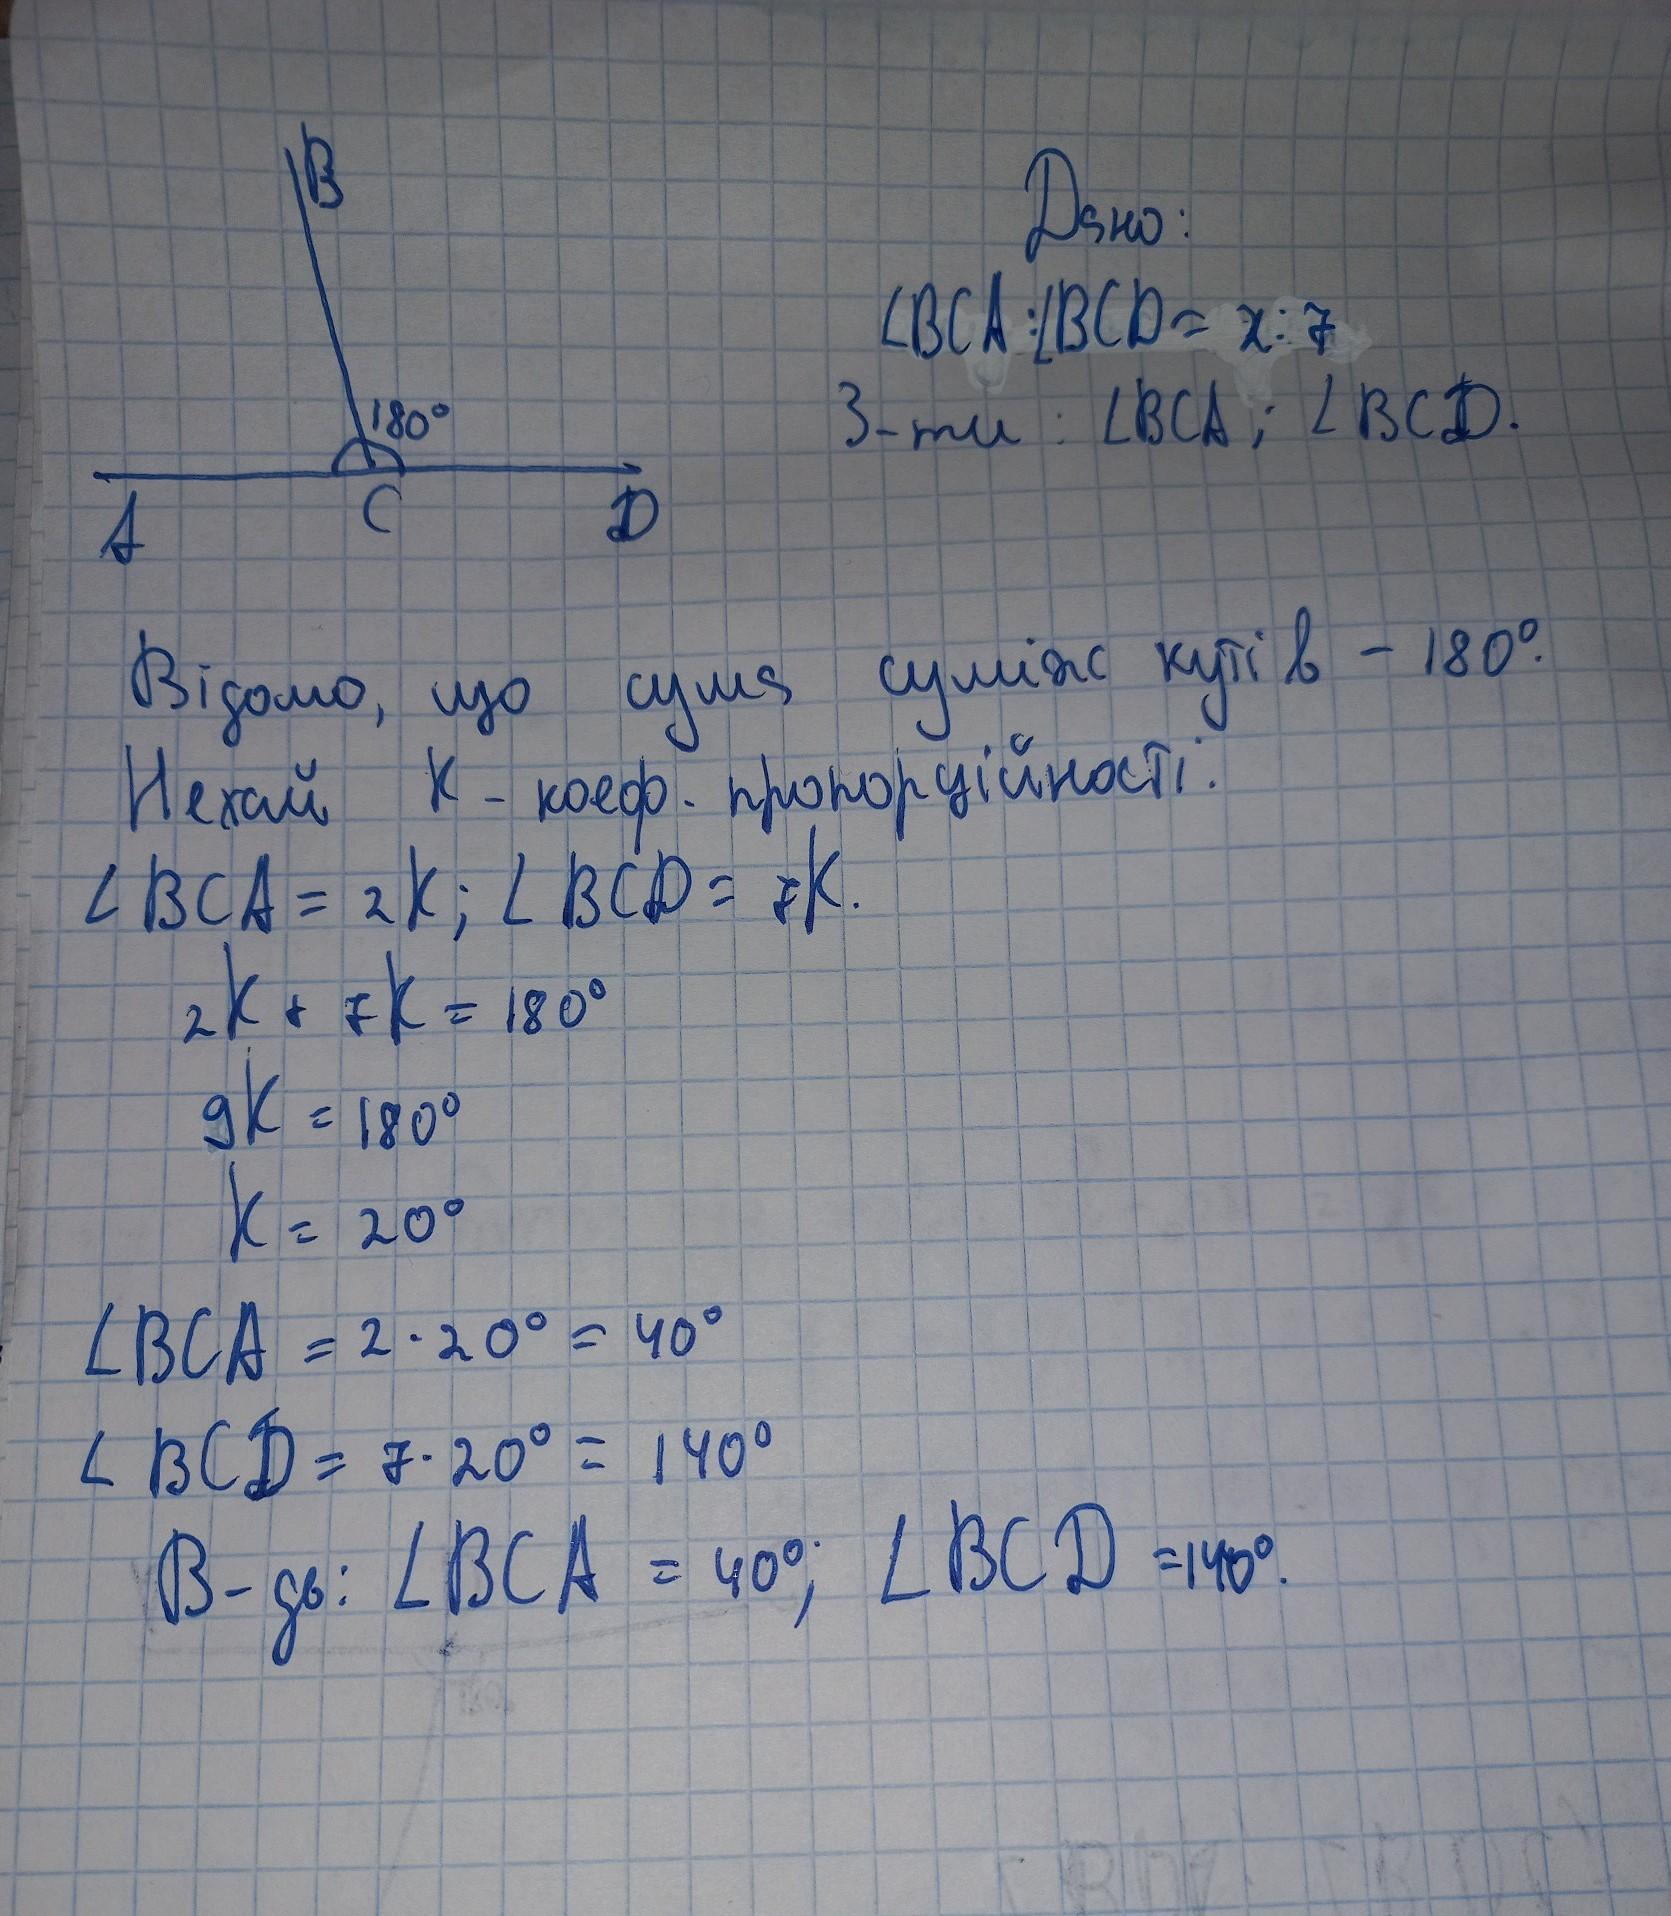 B
180°
A
C
D
Дано:
∠BCA:∠BCD= 2:7
З-ти: ∠BCA; ∠BCD.
Відомо, що сума суміж кутів - 180°.
Нехай K - коеф. пропорційності.
∠BCA = 2K; ∠BCD = 7K.
2K + 7K = 180°
9K = 180°
K = 20°
∠BCA = 2·20° = 40°
∠BCD = 7·20° = 140°
В-дь: ∠BCA = 40°; ∠BCD =140°.